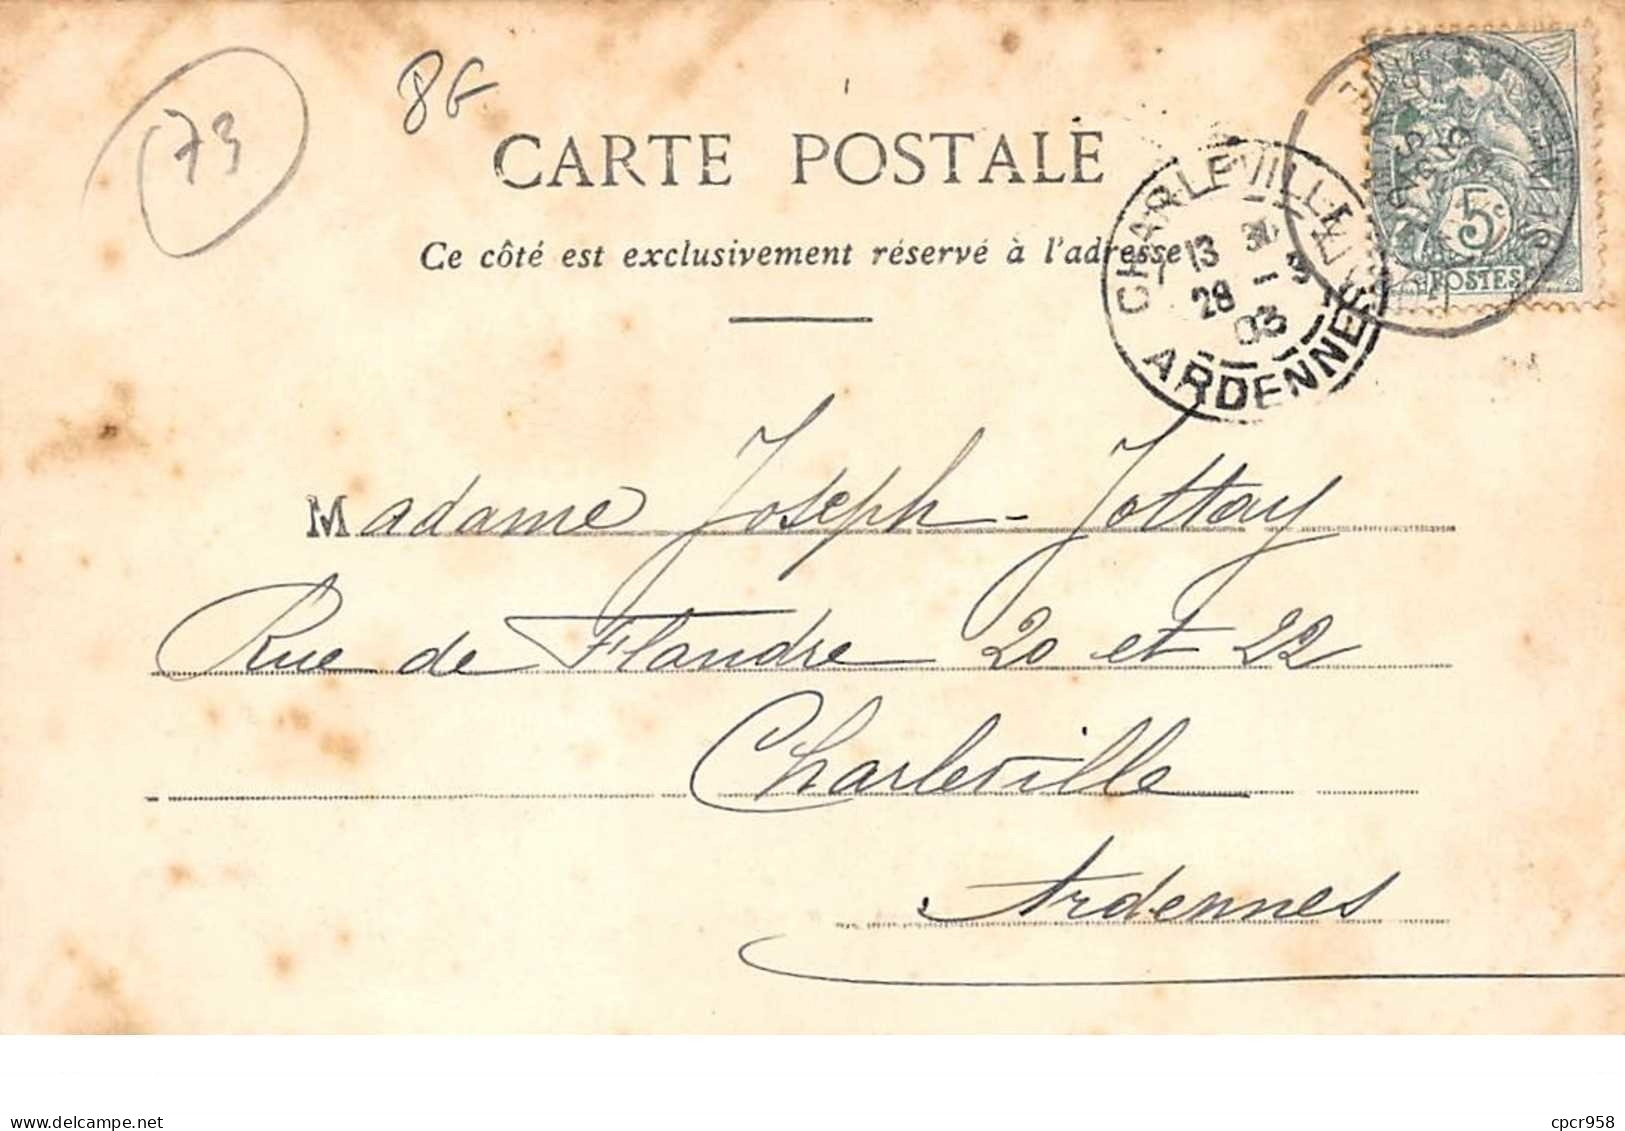 73
CARTE POSTALE
Ce côté est exclusivement réservé à l'adresse
CHARLEVILLE
13 30
28 - 1
03
ARDENNES
5c
POSTES
Madame Joseph-Jottay
Rue de Flandre 20 et 22
Charleville
Ardennes
www.delcampe.net
cpcr958